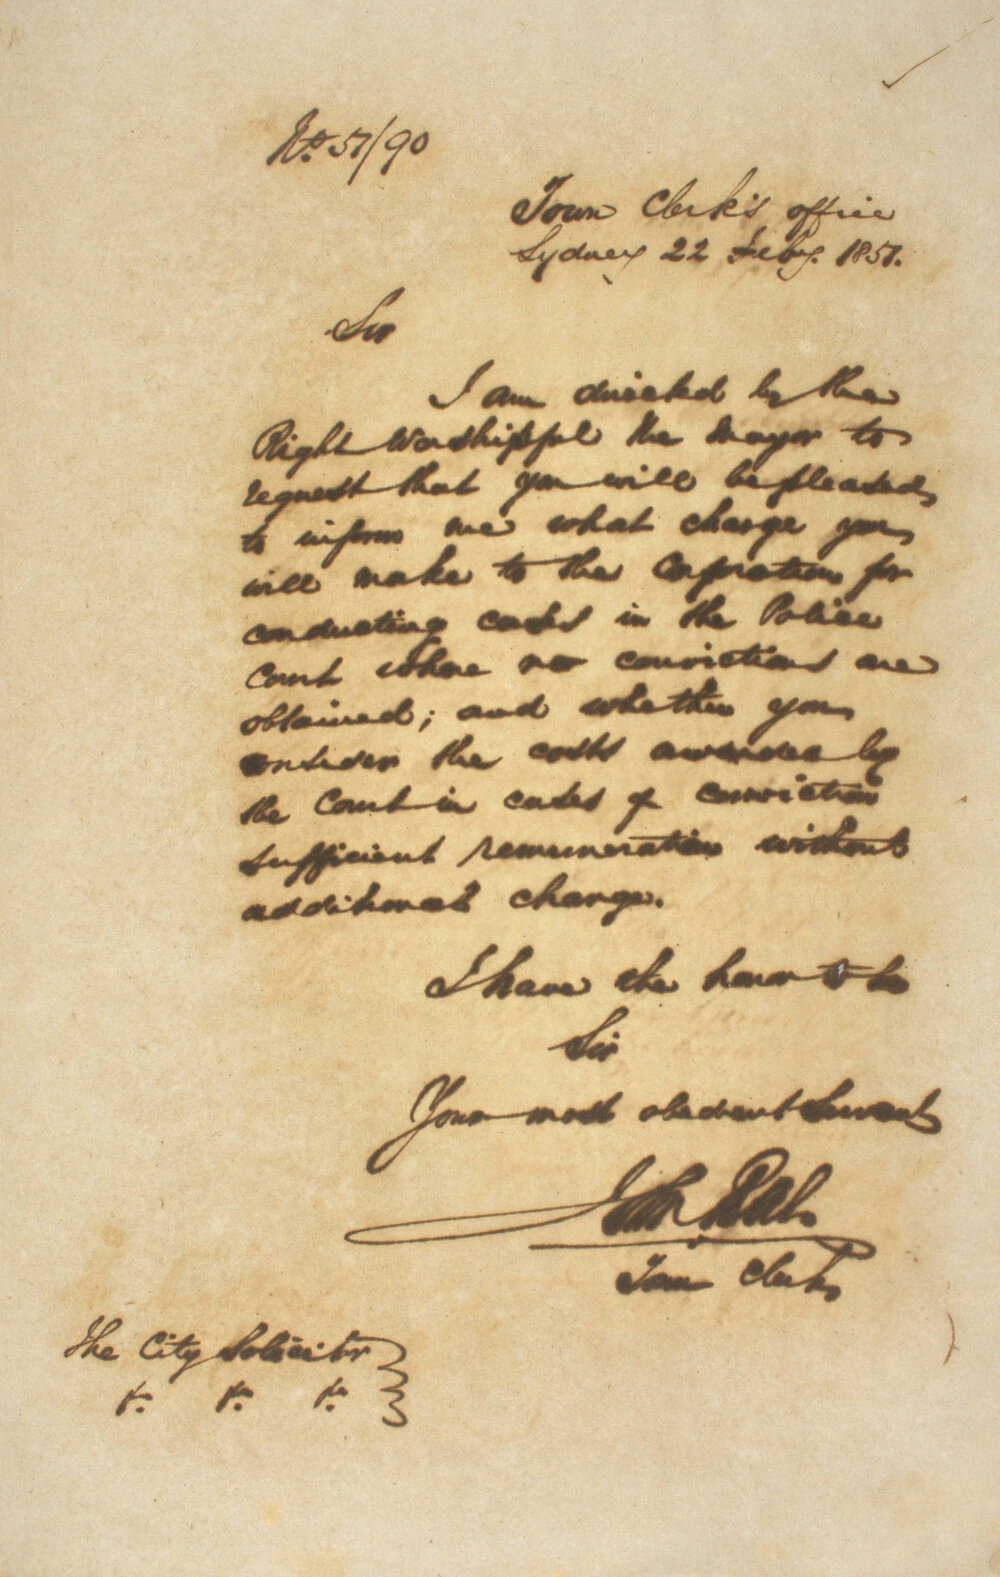 No. 51/90
Town Clerk's office
Sydney 22 Feby. 1851.
Sir
I am directed by the
Right Worshipful the Mayor to
request that you will be pleased
to inform me what charge you
will make to the Corporation for
conducting cases in the Police
Court where no convictions are
obtained; and whether you
consider the costs awarded by
the Court in cases of conviction
sufficient remuneration without
additional charge.
I have the honor to be
Sir
Your most obedient Servant
John
Town Clerk
The City Solicitor